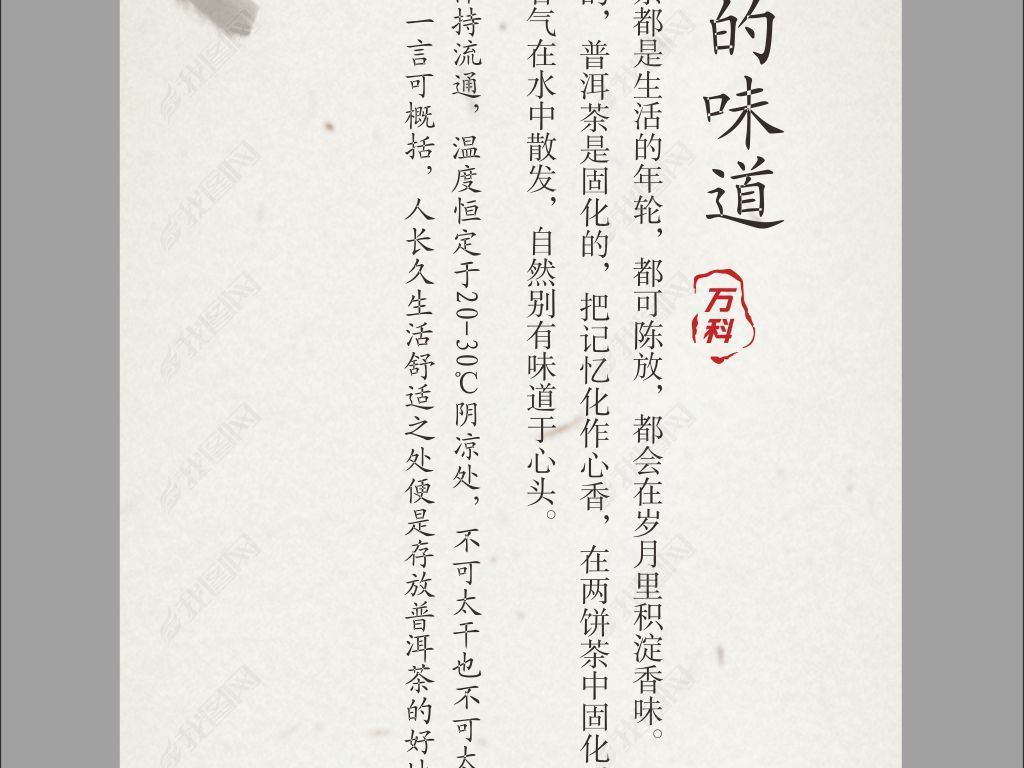 的味道
万科
都是生活的年轮，都可陈放，都会在岁月里积淀香味。
的，普洱茶是固化的，把记忆化作心香，在两饼茶中固化
香气在水中散发，自然别有味道于心头。
持流通，温度恒定于20-30℃阴凉处，不可太干也不可太
一言可概括，人长久生活舒适之处便是存放普洱茶的好